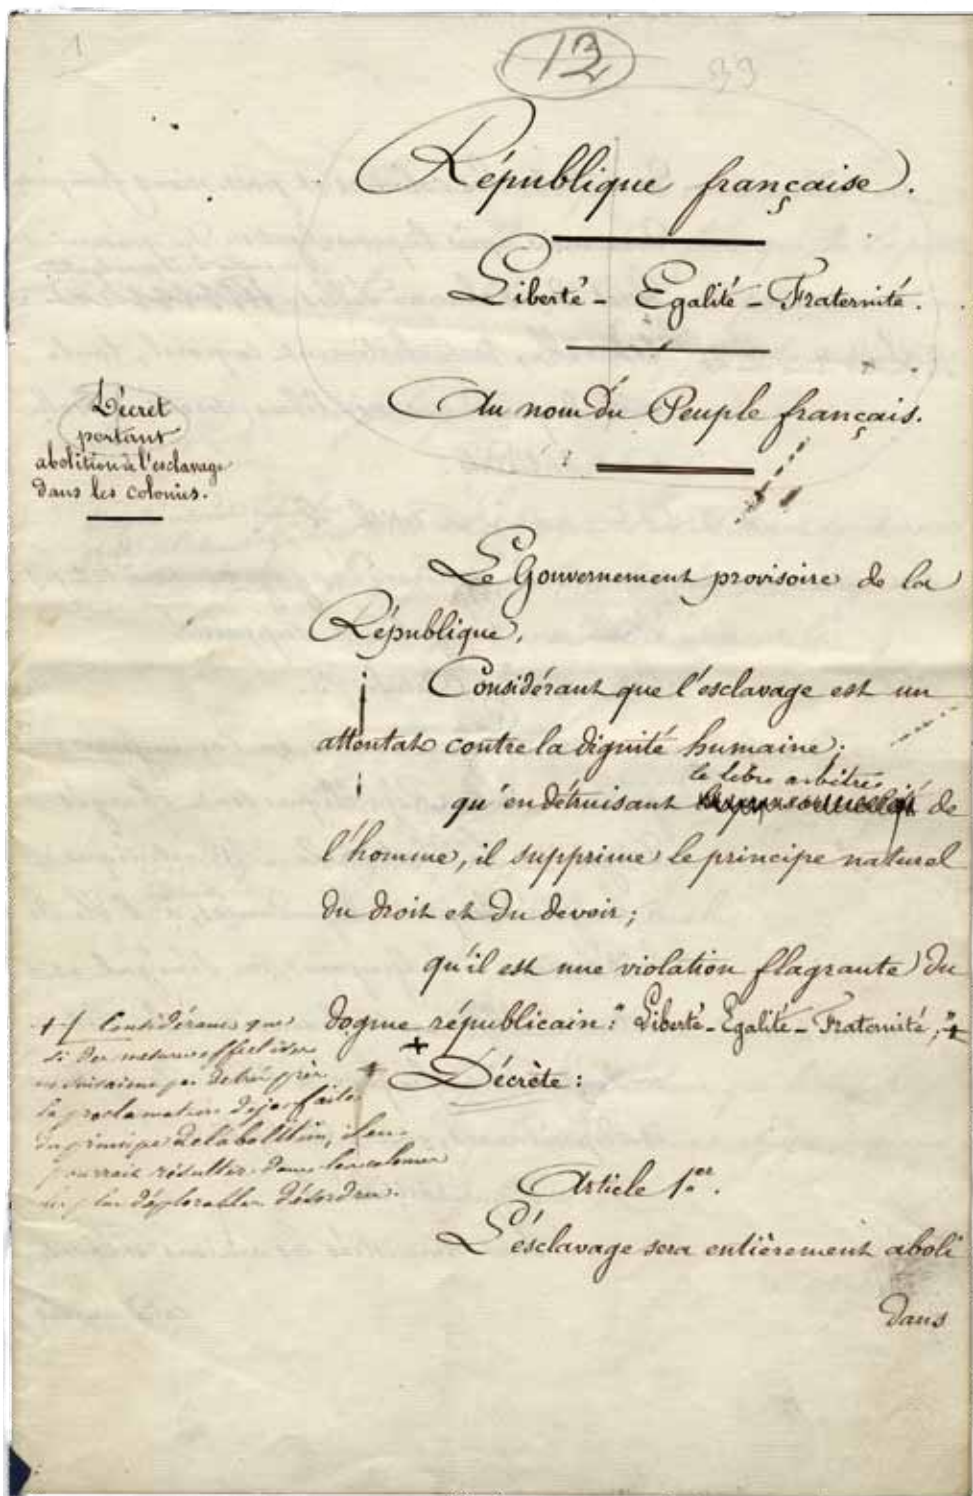 1
12
33
République française.
Liberté - Egalité - Fraternité.
Au nom du Peuple français.
Décret
portant
abolition de l'esclavage
dans les colonies.
Le Gouvernement provisoire de la
République,
Considérant que l'esclavage est un
attentat contre la dignité humaine;
le libre arbitre
qu'en détruisant de
l'homme, il supprime le principe naturel
du droit et du devoir;
qu'il est une violation flagrante du
dogme républicain: "Liberté - Egalité - Fraternité;" +
+ Considérant que
si des mesures effectives
ne suivaient pas de très près
la proclamation déjà faite
du principe de l'abolition, il en
pourrait résulter dans les colonies
les plus déplorables désordres.
+
Décrète:
Article 1er.
L'esclavage sera entièrement aboli
dans